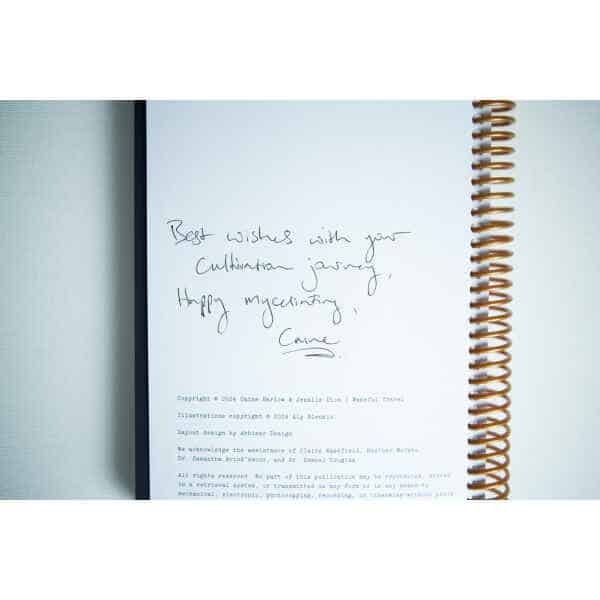 Best wishes with your
Cultivation journey,
Happy myceliating,
Caine
Copyright © 2024 Caine Barlow & Jennila Dion | Fanciful
Illustrations copyright © 2024 Aly Blenkin
Layout design by Design
We acknowledge the assistance of Claire Heather
Dr. Samantha and Dr.
All rights reserved. No part of this publication may be reproduced, stored
in a retrieval system, or transmitted in any form or by any means
mechanical, electronic, photocopying, recording, or otherwise without prior